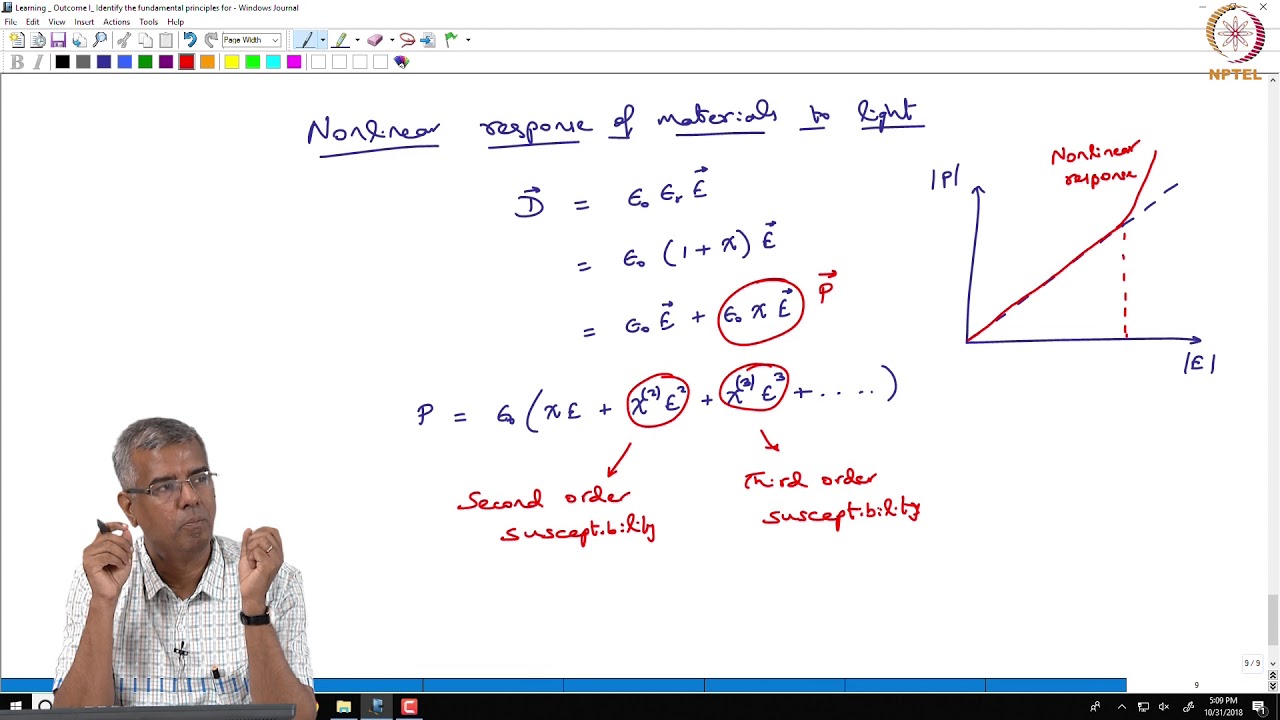 Learning _ Outcome I_ Identify the fundamental principles for - Windows Journal
File Edit View Insert Actions Tools Help
Page Width
B I
NPTEL
Nonlinear response of materials to light
D⃗ = ϵ₀ ϵᵣ E⃗
= ϵ₀ (1 + χ) E⃗
= ϵ₀ E⃗ + ϵ₀ χ E⃗ P⃗
P = ϵ₀ (χE + χ⁽²⁾E² + χ⁽³⁾E³ + .....)
Second order
susceptibility
Third order
susceptibility
|P|
Nonlinear
response
|E|
9 / 9
9
5:09 PM
10/31/2018